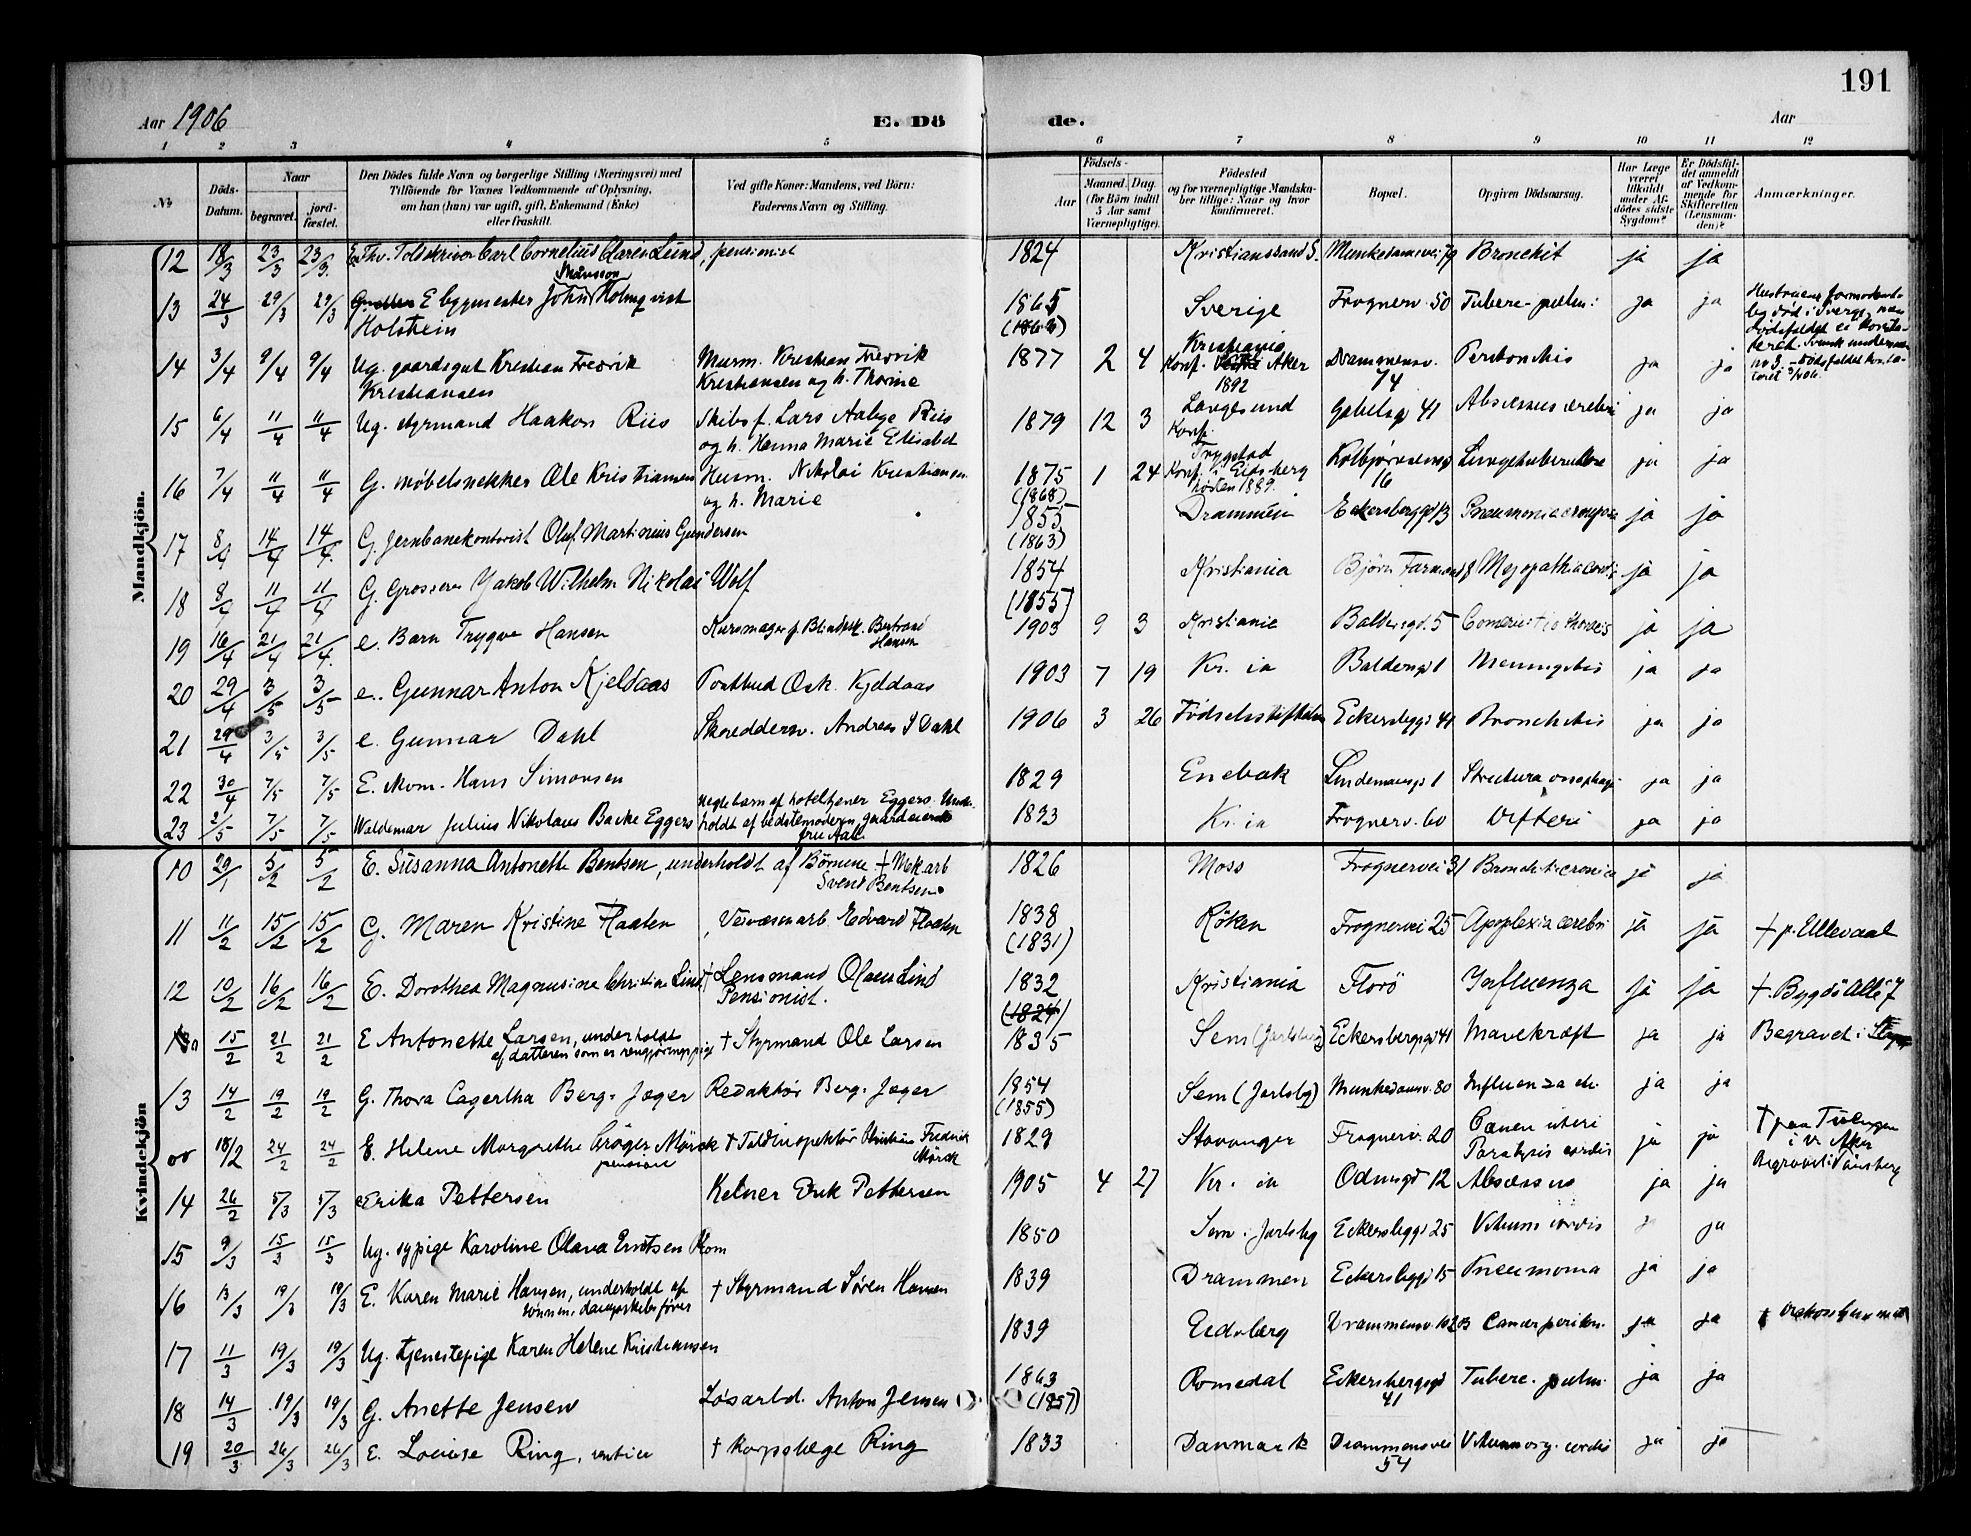 191
Aar 1906
E. Dö
de.
Aar
1 2 3 4 5 6 7 8 9 10 11 12
№
Döds-Datum.
Naar
begravet.
jord-fæstet.
Den Dödes fulde Navn og borgerlige Stilling (Næringsvei) med
Tilföiende for Voxnes Vedkommende af Oplysning,
om han (hun) var ugift, gift, Enkemand (Enke)
eller fraskilt.
Ved gifte Koner: Mandens, ved Börn:
Faderens Navn og Stilling.
Födsels-
Aar
Maaned. Dag.
(for Börn indtil
5 Aar samt
Værnepligtige).
Födested
og for værnepligtige Mandska-
ber tillige: Naar og hvor
konfirmeret.
Bopæl.
Opgiven Dödsaarsag.
Har Læge
været
tilkaldt
under Af-
dödes sidste
Sygdom?
Er Dödsfal-
det anmeldt
af Vedkom-
mende for
Skifteretten
(Lensman-
den)?
Anmærkninger.
Mandkjön.
12 18/3 23/3 23/3 Toldskriver Carl Cornelius Claren Lund, pensionist 1824 Kristianssand S. Munkedamsvei 79 Bronchit ja ja
13 24/3 29/3 29/3 E bygmester John Månsson Holmqvist Holstein 1865 (1863) Sverige Frognerv. 50 Tuberc. pulm: ja ja
14 3/4 9/4 9/4 Ug. gaardsgut Kristian Fredrik Kristiansen Murm. Kristian Fredrik Kristiansen og h. Thorine 1877 2 4 Kristiania Konf. Aker 1892 Drammensv. 74 ja ja
15 6/4 11/4 11/4 Ug. styrmand Haakon Riis Skibsf. Lars Aabye Riis og h. Hanna Marie Elisabet 1879 12 3 Langesund Konf. Gabelsg 41 Abscessus cerebri ja ja
16 7/4 11/4 11/4 G. møbelsnekker Ole Kristiansen Husm. Nikolai Kristiansen og h. Marie 1875 (1868) 1 24 Trygstad Konf. i Eidsberg høsten 1889. 16 Lungetuberkulose ja ja
17 8/4 14/4 14/4 G. Jernbanekontorist Oluf Martinius Gundersen 1855 (1863) Drammen Eckersbergsgd 13 Pneumonia crouposa ja ja
18 8/4 11/4 11/4 G. Grosserer Jakob Wilhelm Nikolai Wolf 1854 (1855) Kristiania Bjørn Farmannsg 8 Myopathia cordis ja ja
19 16/4 21/4 21/4 e. Barn Trygve Hansen Hansen 1903 9 3 Kristiania Baldersgd. 5 ja ja
20 29/4 3/5 3/5 e. Gunnar Anton Kjeldaas Postbud Osk. Kjeldaas 1903 7 19 Kr. ia Baldersgt 1 Meningitis ja ja
21 29/4 3/5 3/5 e. Gunnar Dahl Skreddersv. Andreas S Dahl 1906 3 26 Fødselsstiftelsen Eckersbggd 41 Bronchitis ja ja
22 30/4 7/5 7/5 E. Skom. Hans Simonsen 1829 Enebak Lindemansgt 1 ja ja
23 2/5 7/5 7/5 Waldemar Julius Nikolaus Backe Eggers Uegte barn af hoteltjener Eggers. Underholdt af bedstemoderen fru Aall 1893 Kr. ia Frognerv. 60 Difteri ja ja
Kvindekjön
10 29/1 5/2 5/2 E. Susanna Antonette Bentsen, underholdt af Børnene † Mek arb Svend Bentsen 1826 Moss Frognervei 31 Bronchit cronica ja ja
11 11/2 15/2 15/2 G. Maren Kristine Flaaten, Veivæsenarb Edvard Flaaten 1838 (1831) Røken Frognervei 25 Apoplexia cerebri ja ja † p. Ullevaal
12 10/2 16/2 16/2 E. Dorothea Magnusine Christine Lind † Lensmand Olaus Lind Pensionist. 1832 (1827) Kristiania Florø Influenza ja ja † Bygdø Alle 7
15/2 21/2 21/2 E Antonette Larsen, underholdt af datteren som er rengjøringspige † Styrmand Ole Larsen 1835 Sem (Jarlsberg) Eckersbergsgd 41 Mavekræft ja ja Begravet i
13 14/2 19/2 19/2 G. Thora Cagertha Berg-Jæger Redaktør Berg-Jæger 1854 (1855) Sem (Jarlsbg) Munkedamsv. 80 Influenza ja ja
18/2 24/2 24/2 E. Helene Margrethe Grøger Mørck pension † Toldinspektør Christian Fredrik Mørck 1829 Stavanger Frognerv. 20 Cancer uteri Paralysis cordis ja ja † paa i V. Aker Begravet i Tønsberg
14 26/2 5/3 5/3 e Erika Pettersen Kelner Erik Pettersen 1905 4 27 Kr. ia Odinsgd 12 Abscessus ja ja
15 9/3 15/3 15/3 Ug. sypige Karoline Olava Erntsen Rom 1850 Sem i Jarlsbg Eckersbggd 25 Vitium cordis ja
16 13/3 19/3 19/3 E. Karen Marie Hansen, underholdt af sønnen, dampskibsfører † Styrmand Søren Hansen 1839 Drammen Eckersbggd 15 Pneumonia ja ja
17 11/3 19/3 19/3 Ug. tjenestepige Karen Helene Kristiansen 1839 Eidsberg Drammensv. 102 Cancer ja ja
18 14/3 19/3 19/3 G. Anette Jensen Løsarbd. Anton Jensen 1863 (1857) Romedal Eckersbergsgd 41 Tuberc. pulm. ja ja
19 20/3 26/3 26/3 E. Louise Ring, rentier † Korpslæge Ring 1833 Danmark Drammensvei 54 Vitium org. cordis ja ja